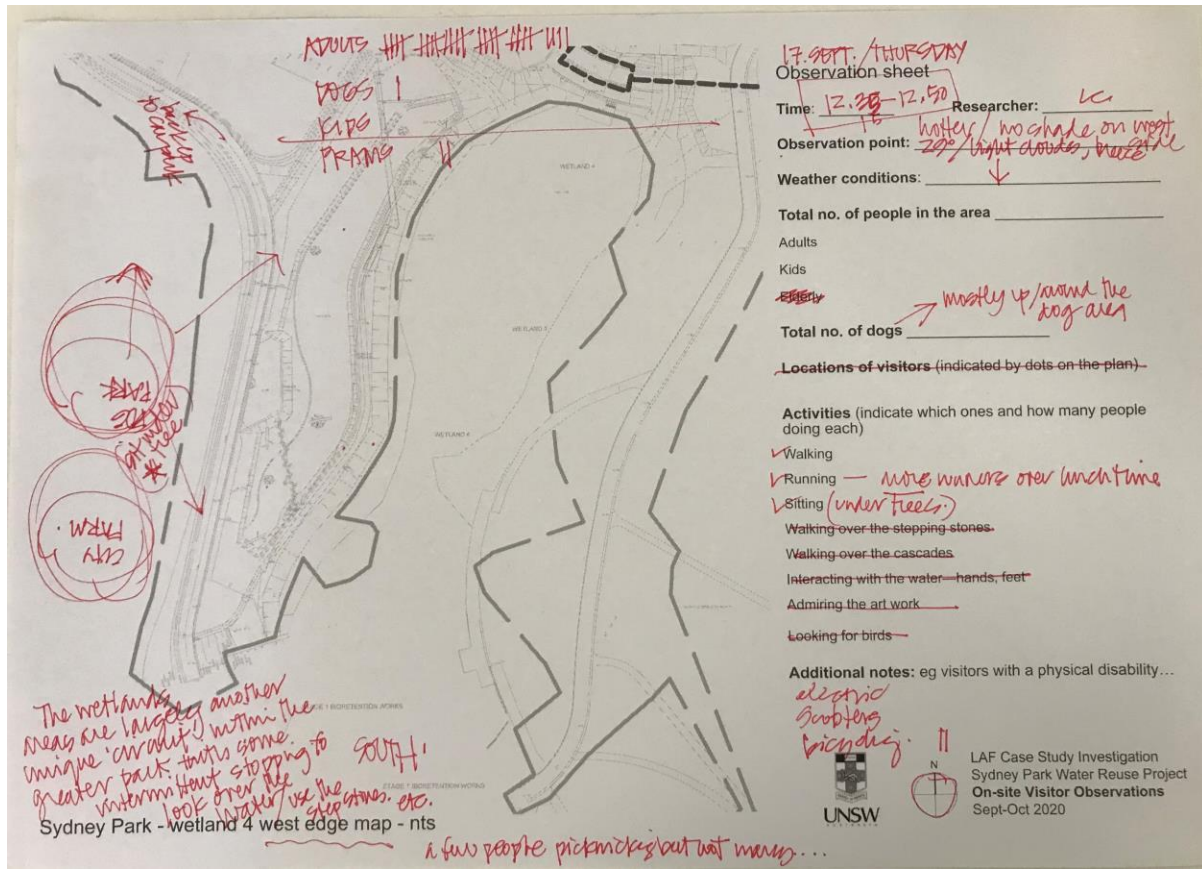 ADULTS
DOGS I
KIDS
PRAMS II
back to carpark
DOG PARK
CITY FARM.
WETLAND 4
WETLAND 3
WETLAND 4
The wetlands
areas are largely another
unique 'circuit' within the
greater park. with some
intermittent stopping to
look over the
water/use the
step stones. etc.
SOUTH.
STAGE 1 BIORETENTION WORKS
STAGE 1 BIORETENTION WORKS
Sydney Park - wetland 4 west edge map - nts
a few people picknicking but not many...
17. SEPT. /THURSDAY
Observation sheet
Time: - 12.50 Researcher:
hotter/ no shade on most
Observation point: 29°/light clouds, breeze
Weather conditions:
Total no. of people in the area
Adults
Kids
Elderly
mostly up/around the
dog area
Total no. of dogs
Locations of visitors (indicated by dots on the plan)
Activities (indicate which ones and how many people
doing each)
Walking
Running — more runners over lunchtime
Sitting (under trees.)
Walking over the stepping stones
Walking over the cascades
Interacting with the water—hands, feet
Admiring the art work
Looking for birds
Additional notes: eg visitors with a physical disability…
electric
scooters
bicycling. II
UNSW
N
LAF Case Study Investigation
Sydney Park Water Reuse Project
On-site Visitor Observations
Sept-Oct 2020